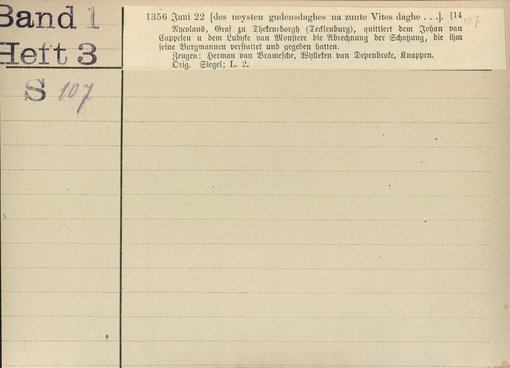 Band 1
Heft 3
S 107
1356 Juni 22 [des neysten gudensdaghes na zunte Vites daghe . . .]. [14
107
Nycolaus, Graf zu Thekeneborgh (Tecklenburg), quittiert dem Johan van
Cappelen u dem Ludyke van Monstere die Abrechnung der Schatzung, die ihm
seine Burgmannen verstattet und gegeben hatten.
Zeugen: Herman van Bramesche, Wylleken van Depenbroke, Knappen.
Orig. Siegel; L. 2.